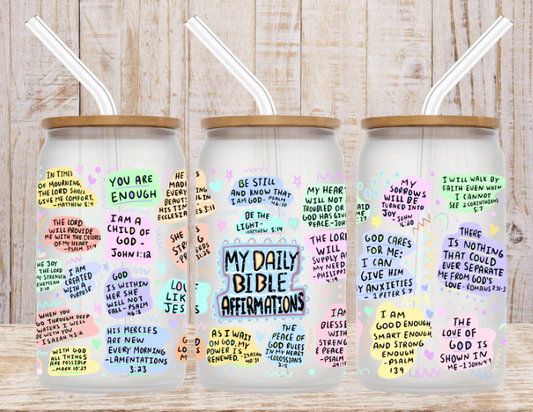 IN TIME
OF MOURNING,
THE LORD SHALL
GIVE ME COMFORT.
MATTHEW 5:4
YOU ARE
ENOUGH
THE LORD
WILL PROVIDE
ME WITH THE DESIRES
OF MY HEART.
-PSALM
I AM A
CHILD OF
GOD -
JOHN 1:12
THE JOY
THE LORD
MY STRENGTH
NEHEMIAH
I AM
CREATED
WITH
PURPOSE
GOD
IS WITHIN
HER SHE
WILL NOT
FALL - PSALM
46:5
WHEN YOU
GO THROUGH DEEP
WATERS I WILL
BE WITH YOU
-ISAIAH 43:2
HIS MERCIES
ARE NEW
EVERY MORNING
-LAMENTATIONS
3:23
WITH GOD
ALL THINGS
ARE POSSIBLE
-MARK 10:27
HE
MADE
EVERY
BEAUTI
HIS TIM
ECCLESIA
SHE
STRO
LOV
LIKE
JES
S 3:11
BE STILL
AND KNOW THAT
I AM GOD- PSALM
46:10
BE THE
LIGHT-
MATTHEW 5:14
MY DAILY
BIBLE
AFFIRMATIONS
MY HEART
WILL NOT
TROUBLED OR
GOD HAS GIV
PEACE-JOH
THE LORD
WILL
SUPPLY A
MY NEED
-PHILIPP
4:19
AS I WAIT
ON GOD, MY
POWER IS
RENEWED. ISAIAH
40:31
THE
PEACE OF
GOD RULES
IN MY HEART
-COLOSSIANS
3:15
I AM
BLESSE
WITH
STRENG
& PEACE
-PSALM
29:11
MY
SORROWS
WILL BE
TURNED INTO
JOY
JOHN
16:20
I WILL WALK BY
FAITH EVEN WHEN
I CANNOT
SEE 2 CORINTHIANS
5:7
GOD CARES
FOR ME;
I CAN
GIVE HIM
MY ANXIETIES
-1 PETER 5:7
THERE
IS NOTHING
THAT COULD
EVER SEPARATE
ME FROM GOD'S
LOVE- ROMANS 8:38
I AM
GOOD ENOUGH,
SMART ENOUGH,
AND STRONG
ENOUGH
-PSALM
139
THE
LOVE OF
GOD IS
SHOWN IN
ME -1 JOHN